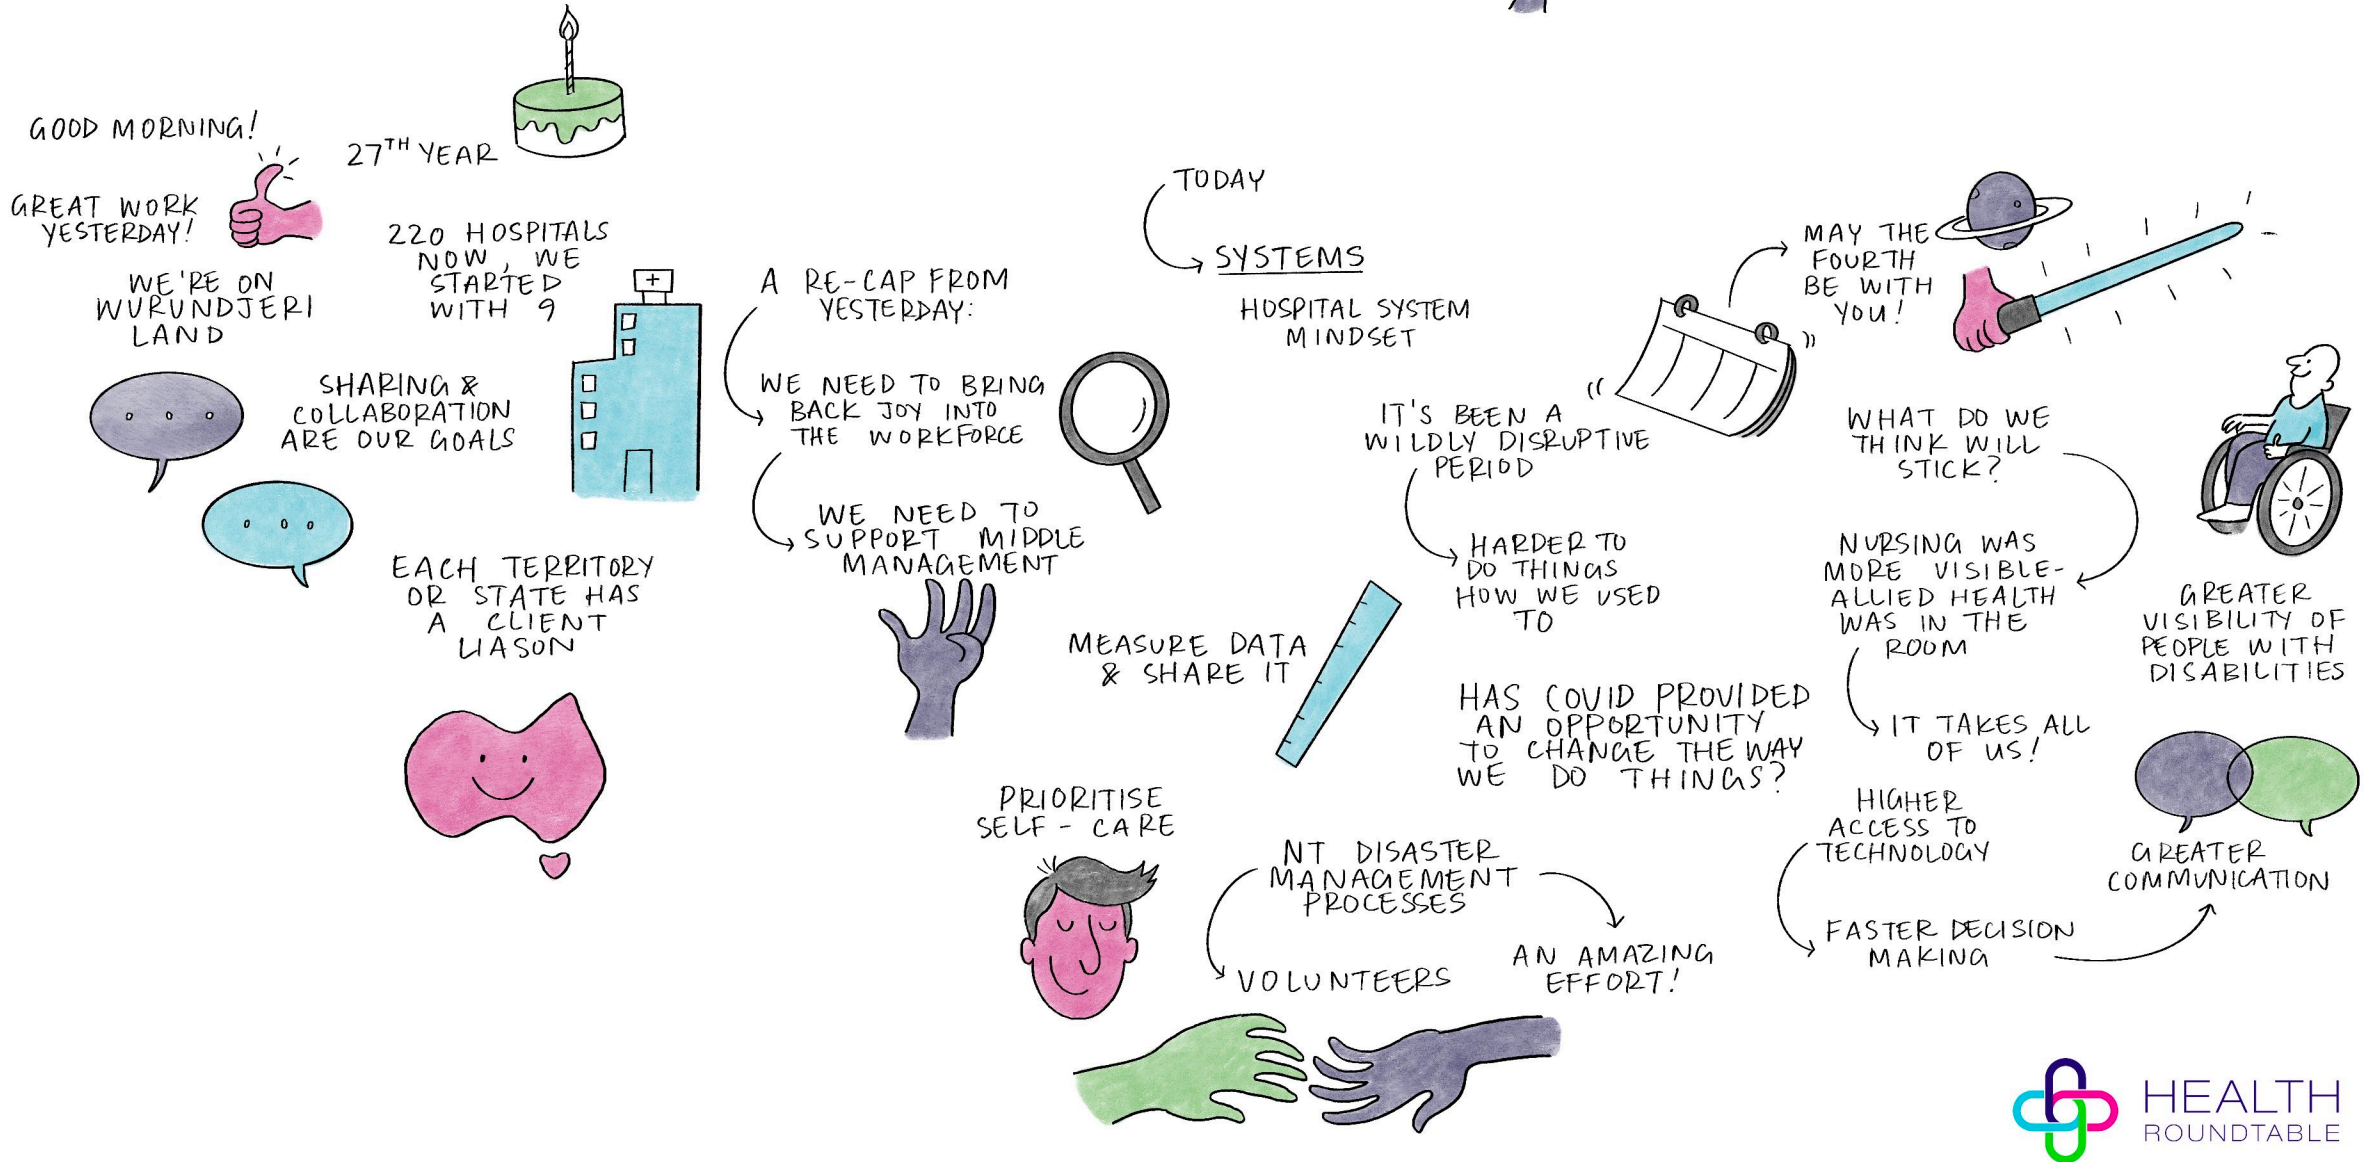 GOOD MORNING!
GREAT WORK
YESTERDAY!
WE'RE ON
WURUNDJERI
LAND
27TH YEAR
220 HOSPITALS
NOW, WE
STARTED
WITH 9
SHARING &
COLLABORATION
ARE OUR GOALS
EACH TERRITORY
OR STATE HAS
A CLIENT
LIASON
A RE-CAP FROM
YESTERDAY:
WE NEED TO BRING
BACK JOY INTO
THE WORKFORCE
WE NEED TO
SUPPORT MIDDLE
MANAGEMENT
MEASURE DATA
& SHARE IT
PRIORITISE
SELF-CARE
TODAY
SYSTEMS
HOSPITAL SYSTEM
MINDSET
IT'S BEEN A
WILDLY DISRUPTIVE
PERIOD
HARDER TO
DO THINGS
HOW WE USED
TO
HAS COVID PROVIDED
AN OPPORTUNITY
TO CHANGE THE WAY
WE DO THINGS?
NT DISASTER
MANAGEMENT
PROCESSES
VOLUNTEERS
AN AMAZING
EFFORT!
MAY THE
FOURTH
BE WITH
YOU!
WHAT DO WE
THINK WILL
STICK?
NURSING WAS
MORE VISIBLE-
ALLIED HEALTH
WAS IN THE
ROOM
IT TAKES ALL
OF US!
GREATER
VISIBILITY OF
PEOPLE WITH
DISABILITIES
HIGHER
ACCESS TO
TECHNOLOGY
FASTER DECISION
MAKING
GREATER
COMMUNICATION
HEALTH
ROUNDTABLE